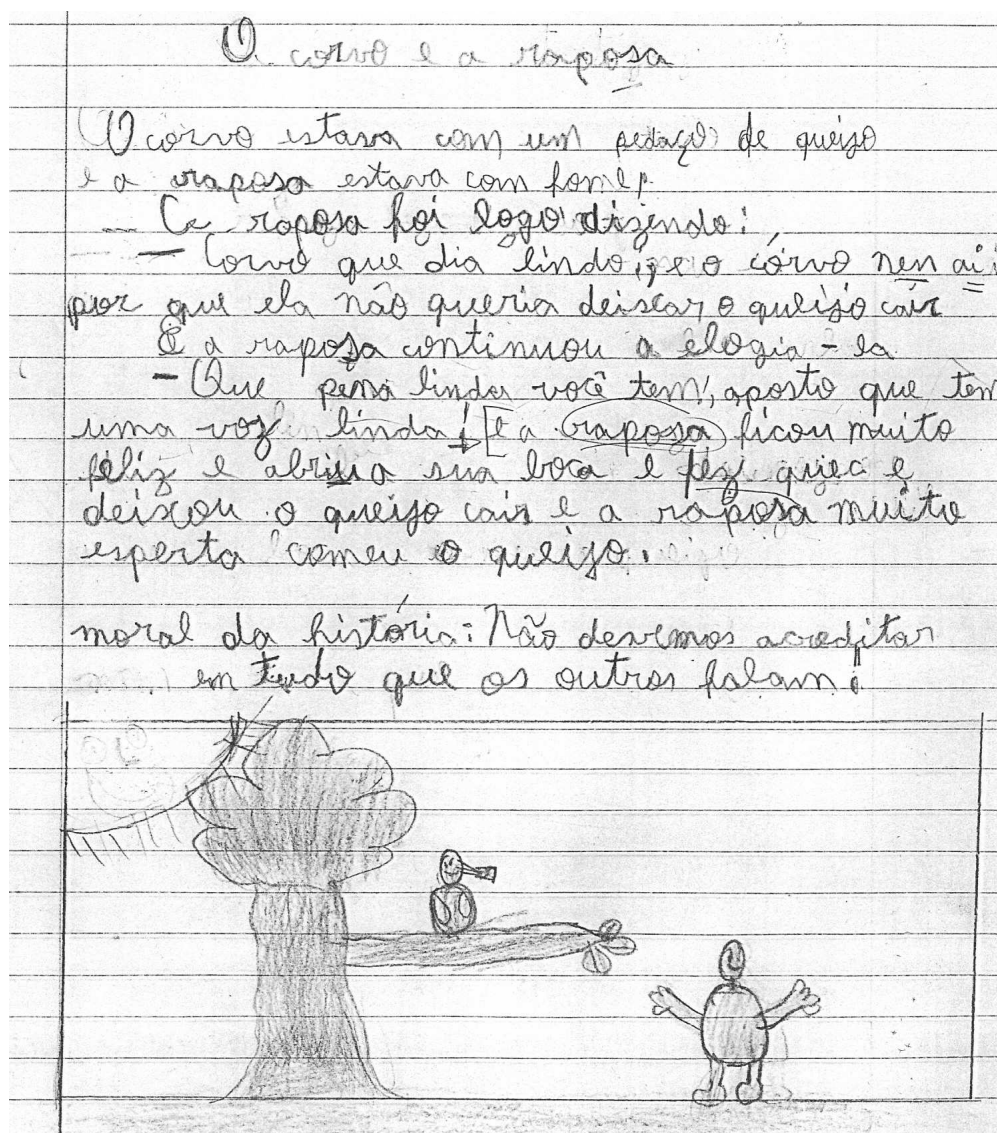 O corvo e a raposa
O corvo estava com um pedaço de queijo
e a raposa estava com fome.
— A raposa foi logo dizendo:
— Corvo que dia lindo, e o córvo nen ai
por que ela não queria deixar o queijo cair
E a raposa continuou a elogia-la
- Que pena linda você tem, aposto que tem
uma voz linda! [e a raposa ficou muito
feliz e abriu a sua boca e fez e
deixou o queijo cair e a raposa muito
esperta comeu o queijo.
moral da história: Não devemos acreditar
em tudo que os outros falam!